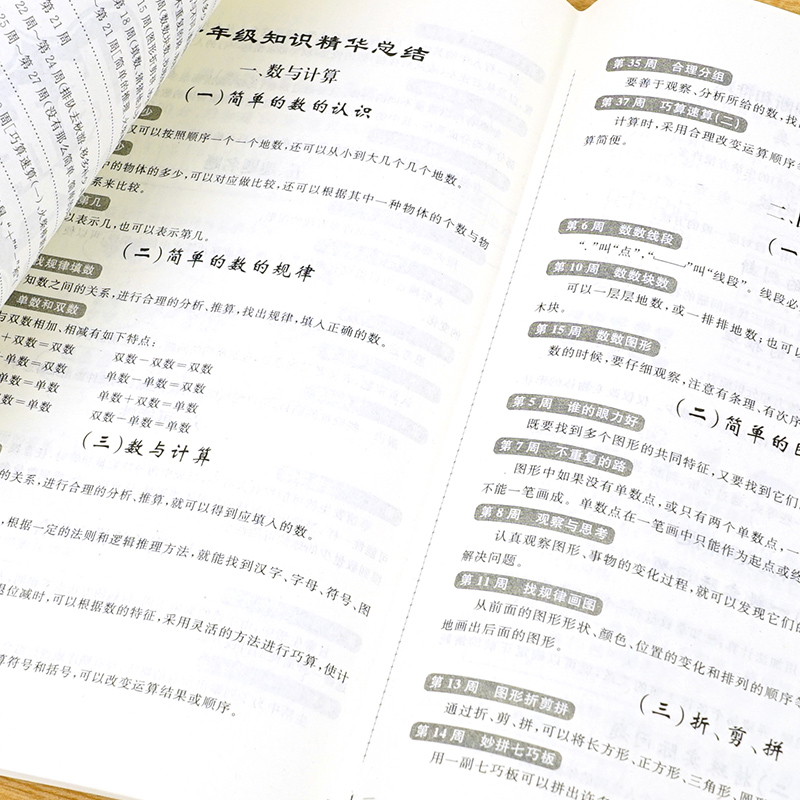 21周
第24周(排队去秋游
第27周(没有那么简单
第15周(图形折剪
第18周(填数
第21周[简单的推
年级知识精华总结
一、数与计算
(一)简单的数的认识
又可以按照顺序一个一个地数,还可以从小到大几个几个地数。
中的物体的多少,可以对应做比较,还可以根据其中一种物体的个数与物
系来比较。
第几
以表示几,也可以表示第几。
(二)简单的数的规律
找规律填数
知数之间的关系,进行合理的分析、推算,找出规律,填入正确的数。
单数和双数
与双数相加、相减有如下特点:
+双数=双数 双数-双数=双数
单数=双数 单数-单数=双数
单数=单数 单数+双数=单数
数=单数 双数-单数=单数
(三)数与计算
的关系,进行合理的分析、推算,就可以得到应填入的数。
,根据一定的法则和逻辑推理方法,就能找到汉字、字母、符号、图
退位减时,可以根据数的特征,采用灵活的方法进行巧算,使计
算符号和括号,可以改变运算结果或顺序。
第35周 合理分组
要善于观察、分析所给的数,找
第37周 巧算速算(二)
计算时,采用合理改变运算顺序
算简便。
二、
(一
第6周 数数线段
“.”叫“点”,“____”叫“线段”。线段必
第10周 数数块数
可以一层层地数,或一排排地数;也可以
木块。
第15周 数数图形
数的时候,要仔细观察,注意有条理、有次序
(二)简单的
第5周 谁的眼力好
既要找到多个图形的共同特征,又要找到它们
第7周 不重复的路
图形中如果没有单数点,或只有两个单数点,一
不能一笔画成。单数点在一笔画中只能作为起点或终
第8周 观察与思考
认真观察图形、事物的变化过程,就可以发现它们的
解决问题。
第11周 找规律画图
从前面的图形形状、颜色、位置的变化和排列的顺序
地画出后面的图形。
(三)折、剪、拼
第13周 图形折剪拼
通过折、剪、拼,可以将长方形、正方形、三角形、圆
第14周 妙拼七巧板
用一副七巧板可以拼出许